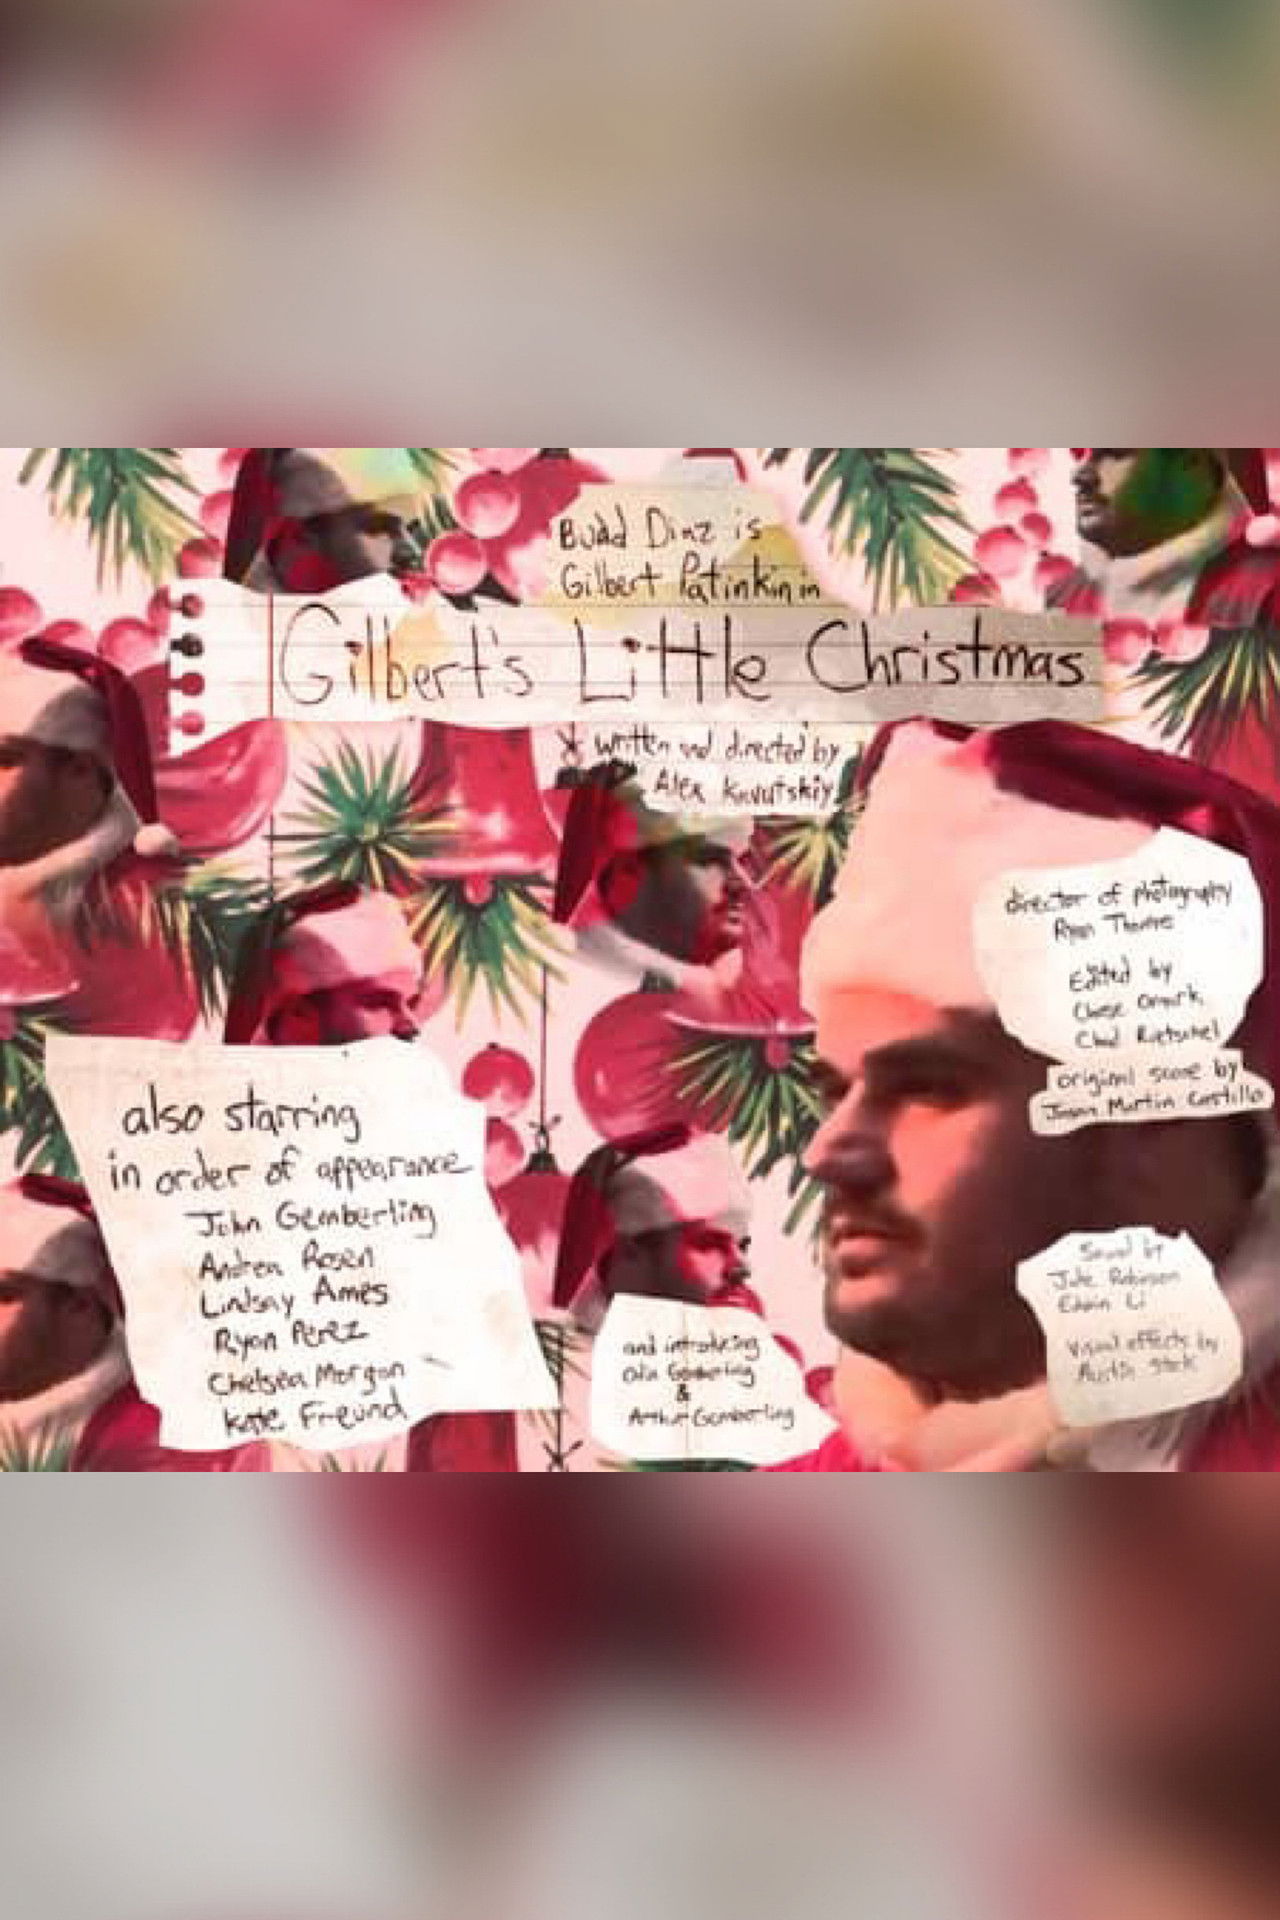 Budd Diaz is
Gilbert Patinkin in
Gilbert's Little Christmas
* written and directed by
Alex Kavutskiy
director of photography
Ryan Thomas
Edited by
Chase
Chad Rietschel
original score by
Jason Martin Castillo
also starring
in order of appearance
John Gemberling
Andrea Rosen
Lindsay Ames
Ryan Perez
Chelsea Morgan
Kate Freund
and introducing
Gemberling
&
Arthur Gemberling
Sound by
Robinson
Edwin Li
Visual effects by
Austin